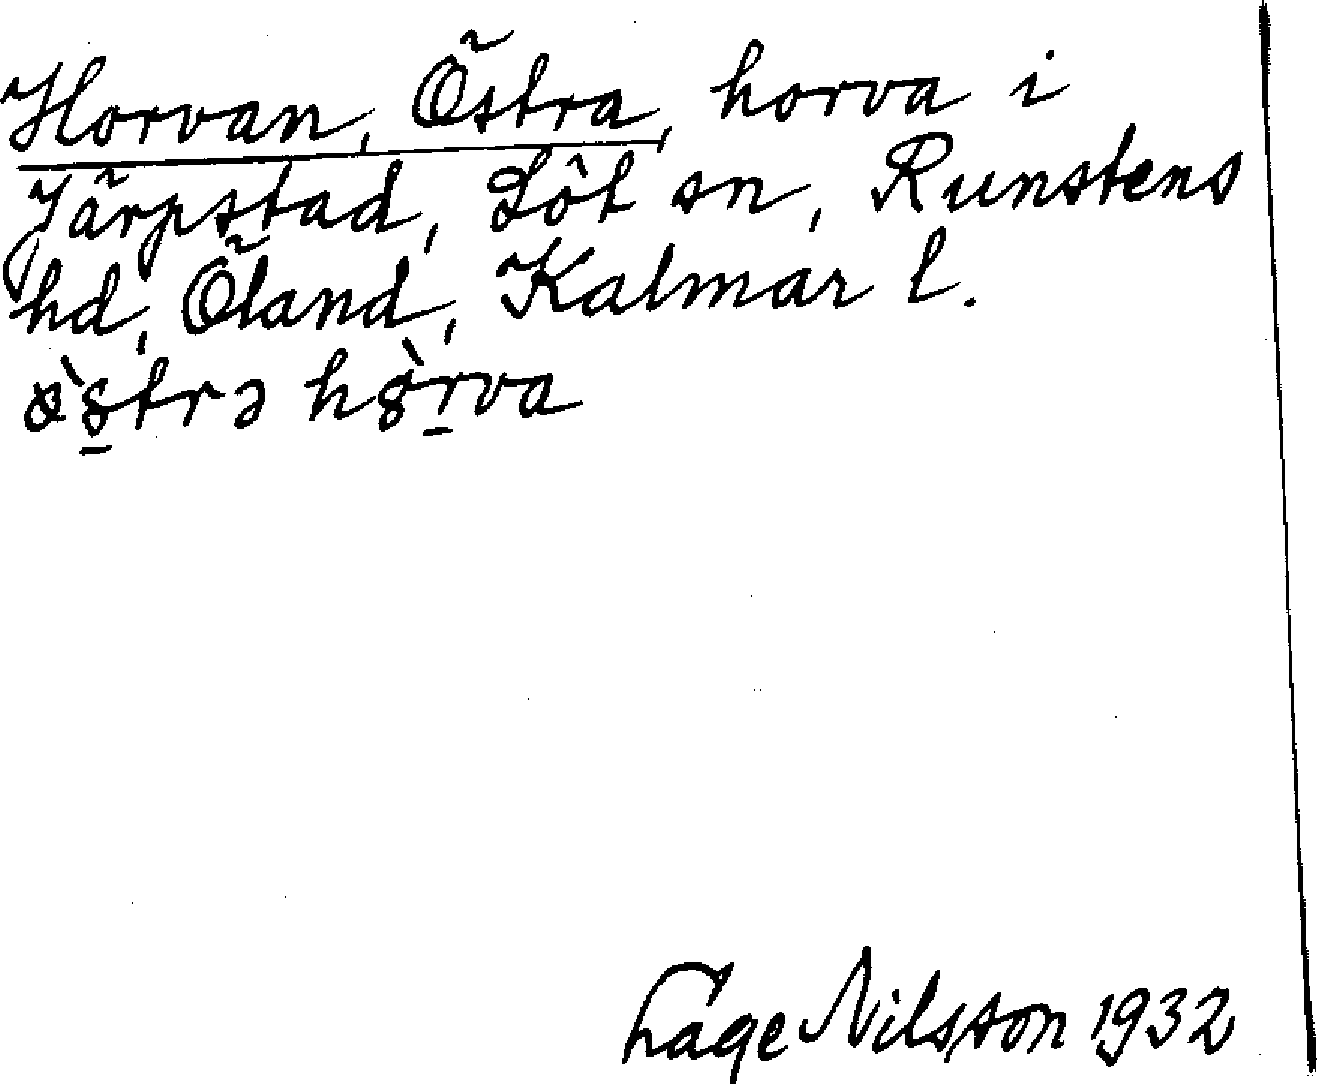 Horvan, Östra, horva i
Järpstad, Löt sn, Runstens
hd, Öland, Kalmar l.
ö̀s̱trə hò̱rva
Lage Nilsson 1932